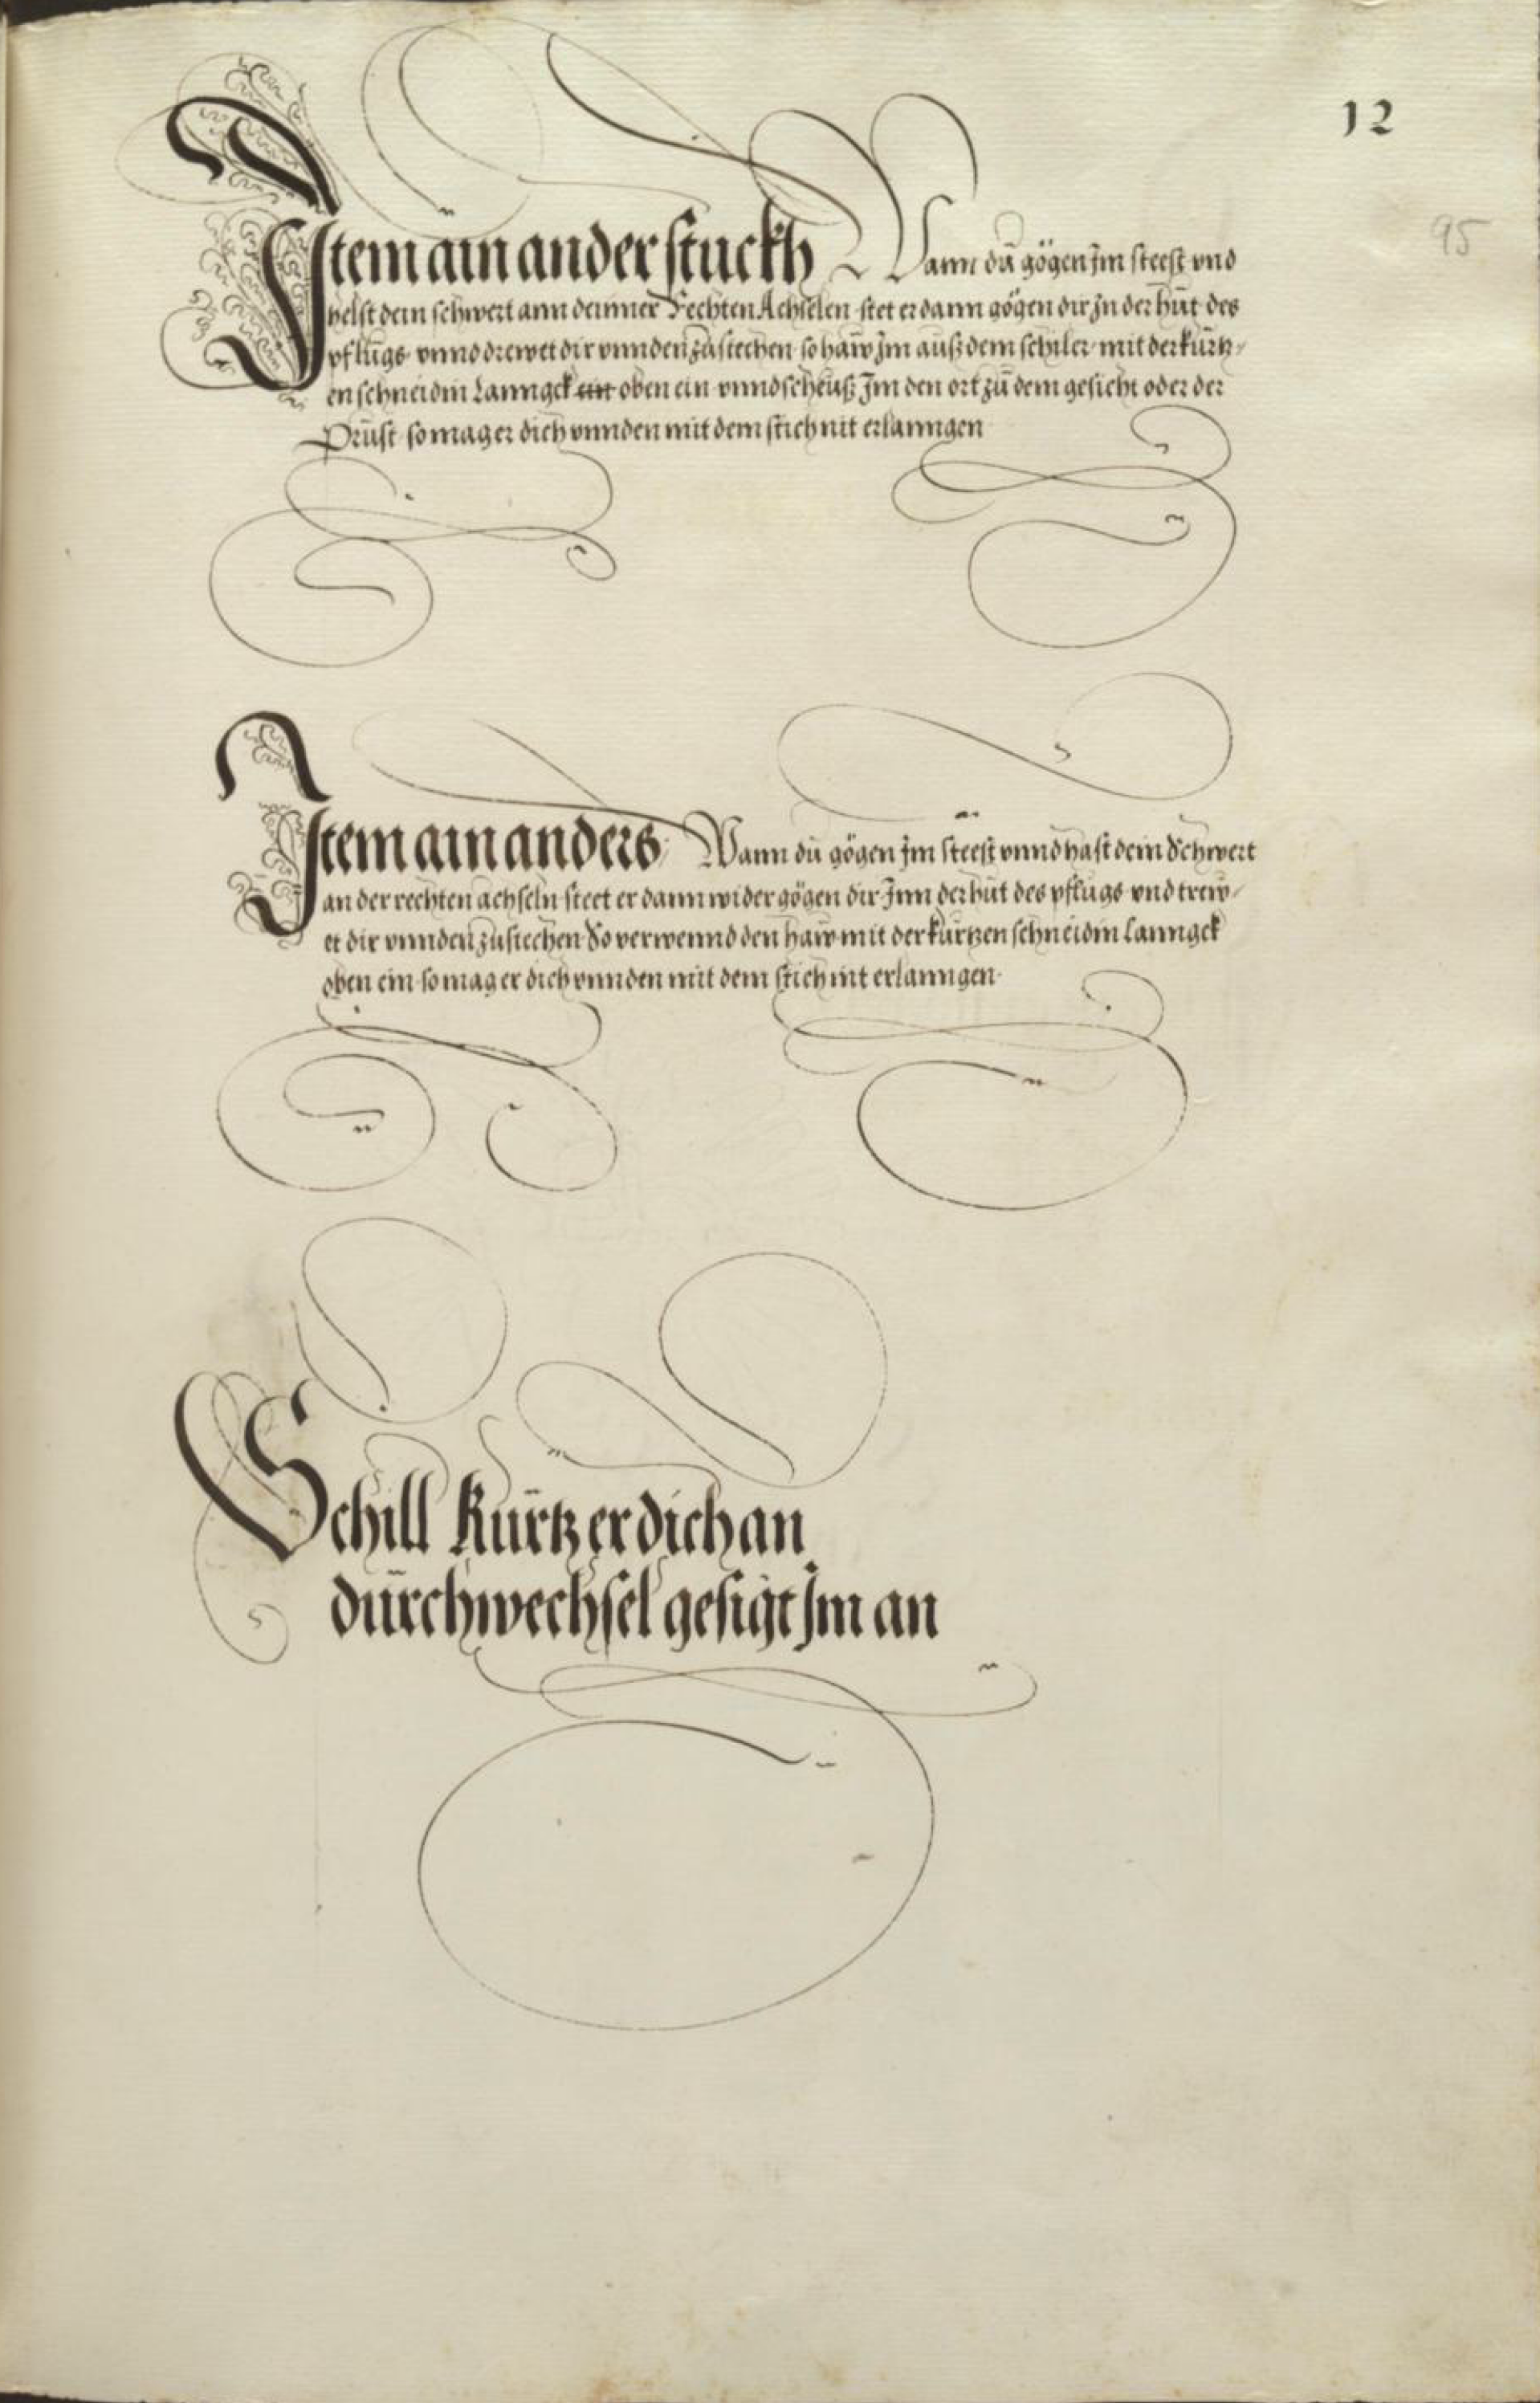 12
95
Item ain ander stuckh Wann dū gögen jm steest vnd
helst dein schwert ann deinner Rechten Achselen stet er dann gögen dir jn der hūt des
pflūgs vnnd drewet dir vnnden zūstechen so haw jm auß dem schiler mit der kūrtz-
en schneid in Lanngck ein oben ein vnnd scheuß Im den ort zū dem gesicht oder der
Prūst so mag er dich vnnden mit dem stich nit erlanngen
Item ain anders Wann dū gögen jm steest vnnd hast dein Schwert
an der rechten achseln steet er dann wider gögen dir Inn der hūt des pflūgs vnd trew-
et dir vnnden zustechen So verwennd den haw mit der kūrtzen schneid in lanngck
oben ein so mag er dich vnnden mit dem stich nit erlanngen
Schill Kūrtz er dich an
dūrchwechsel gesigt Jm an